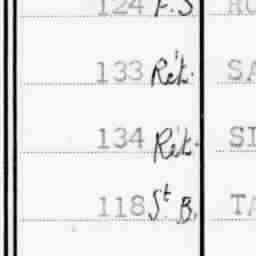 124 F.S
133 Rét. SA
134 Rét. SI
118 St B. TA